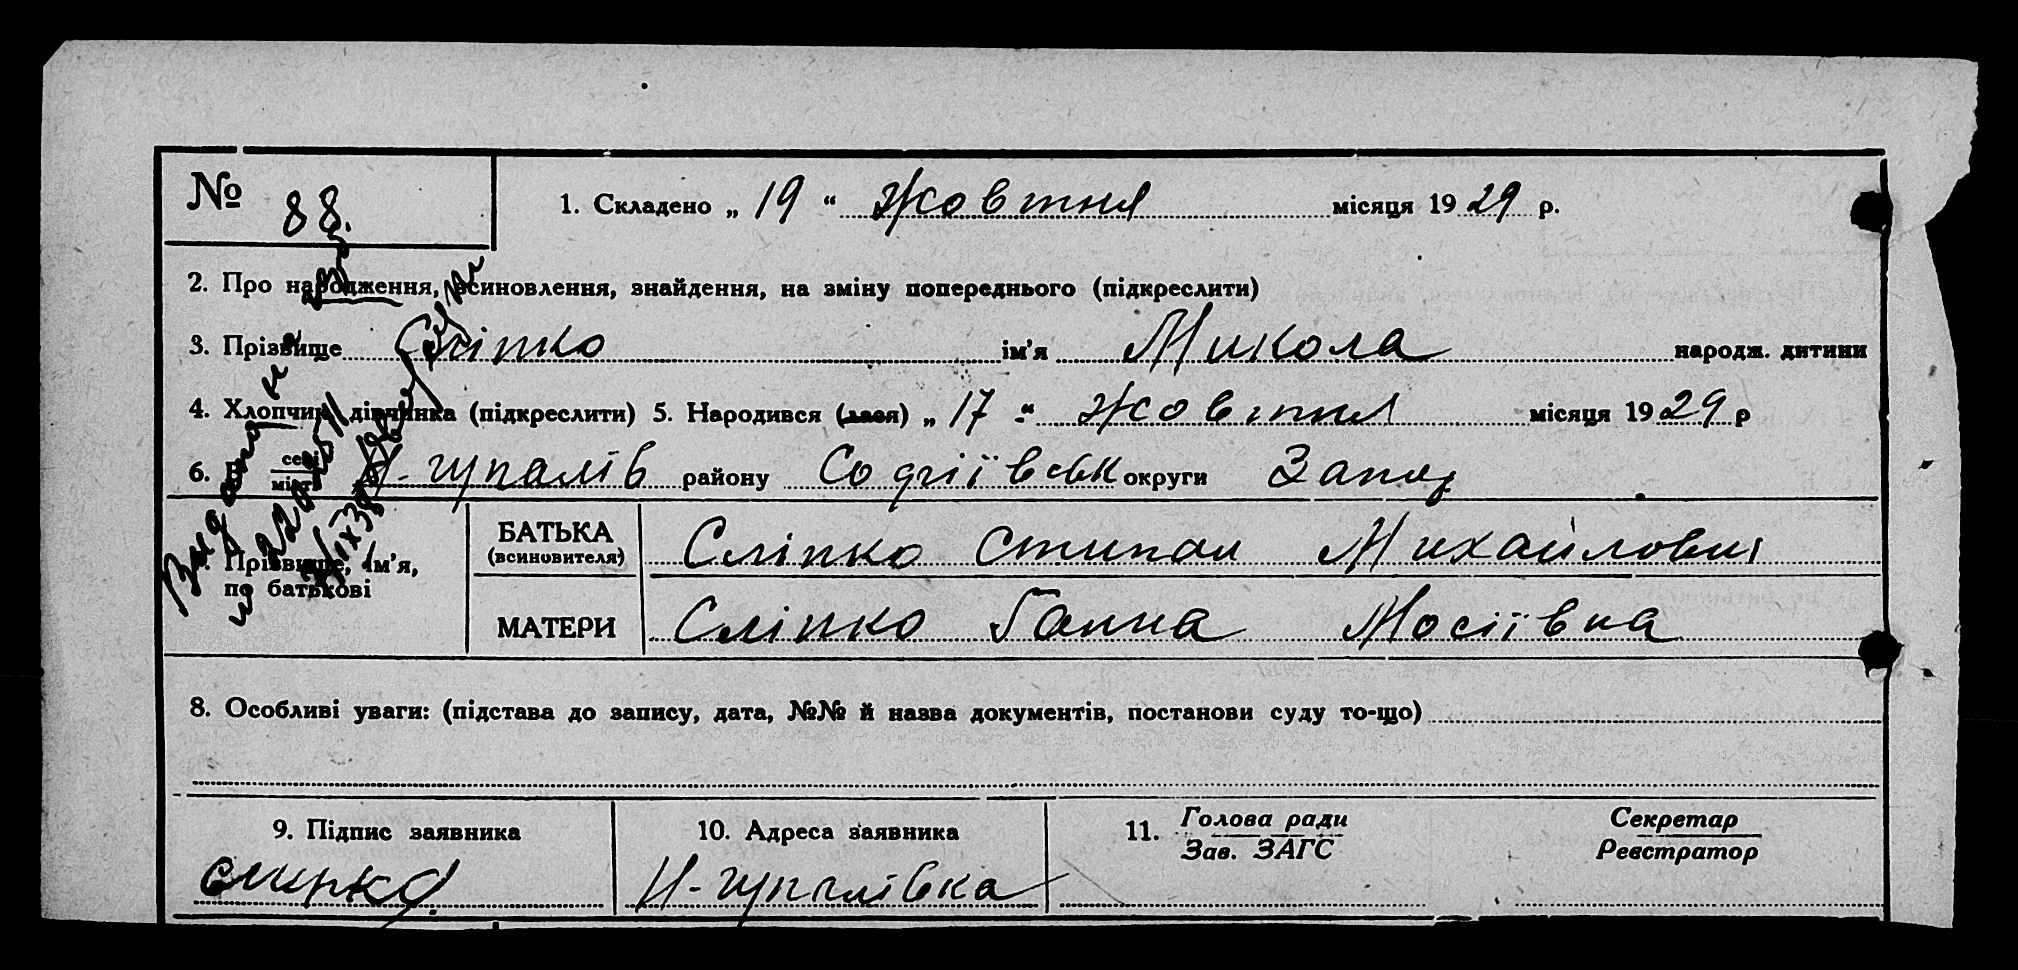 № 88.
1. Складено „ 19 “ Жовтня місяця 1929 р.
2. Про народження, всиновлення, знайдення, на зміну попереднього (підкреслити)
3. Прізвище Сліпко ім’я Микола народж. дитини
4. Хлопчик, дівчинка (підкреслити) 5. Народився (лася) „ 17 “ Жовтня місяця 1929 р
6. В селі місті Н-гупалів району Софіївськ округи Запор
7. Прізвище, ім’я, по батькові
БАТЬКА (всиновителя) Сліпко Степан Михайлович
МАТЕРИ Сліпко Ганна Мосіївна
8. Особливі уваги: (підстава до запису, дата, №№ й назва документів, постанови суду то-що)
9. Підпис заявника
10. Адреса заявника
11. Голова ради Зав. ЗАГС
Секретар Реєстратор
Н-гупалівка